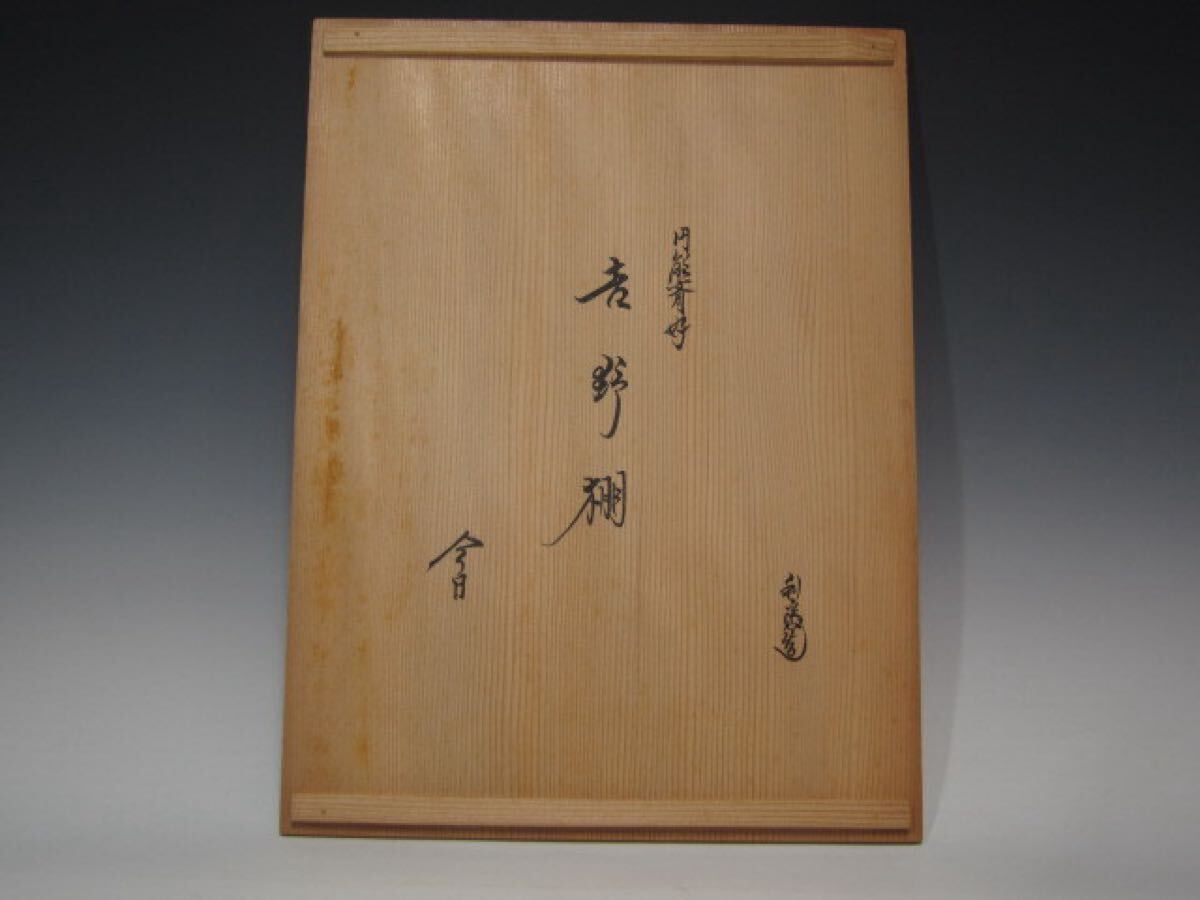 円能斎好
吉野棚
利斎造
今日